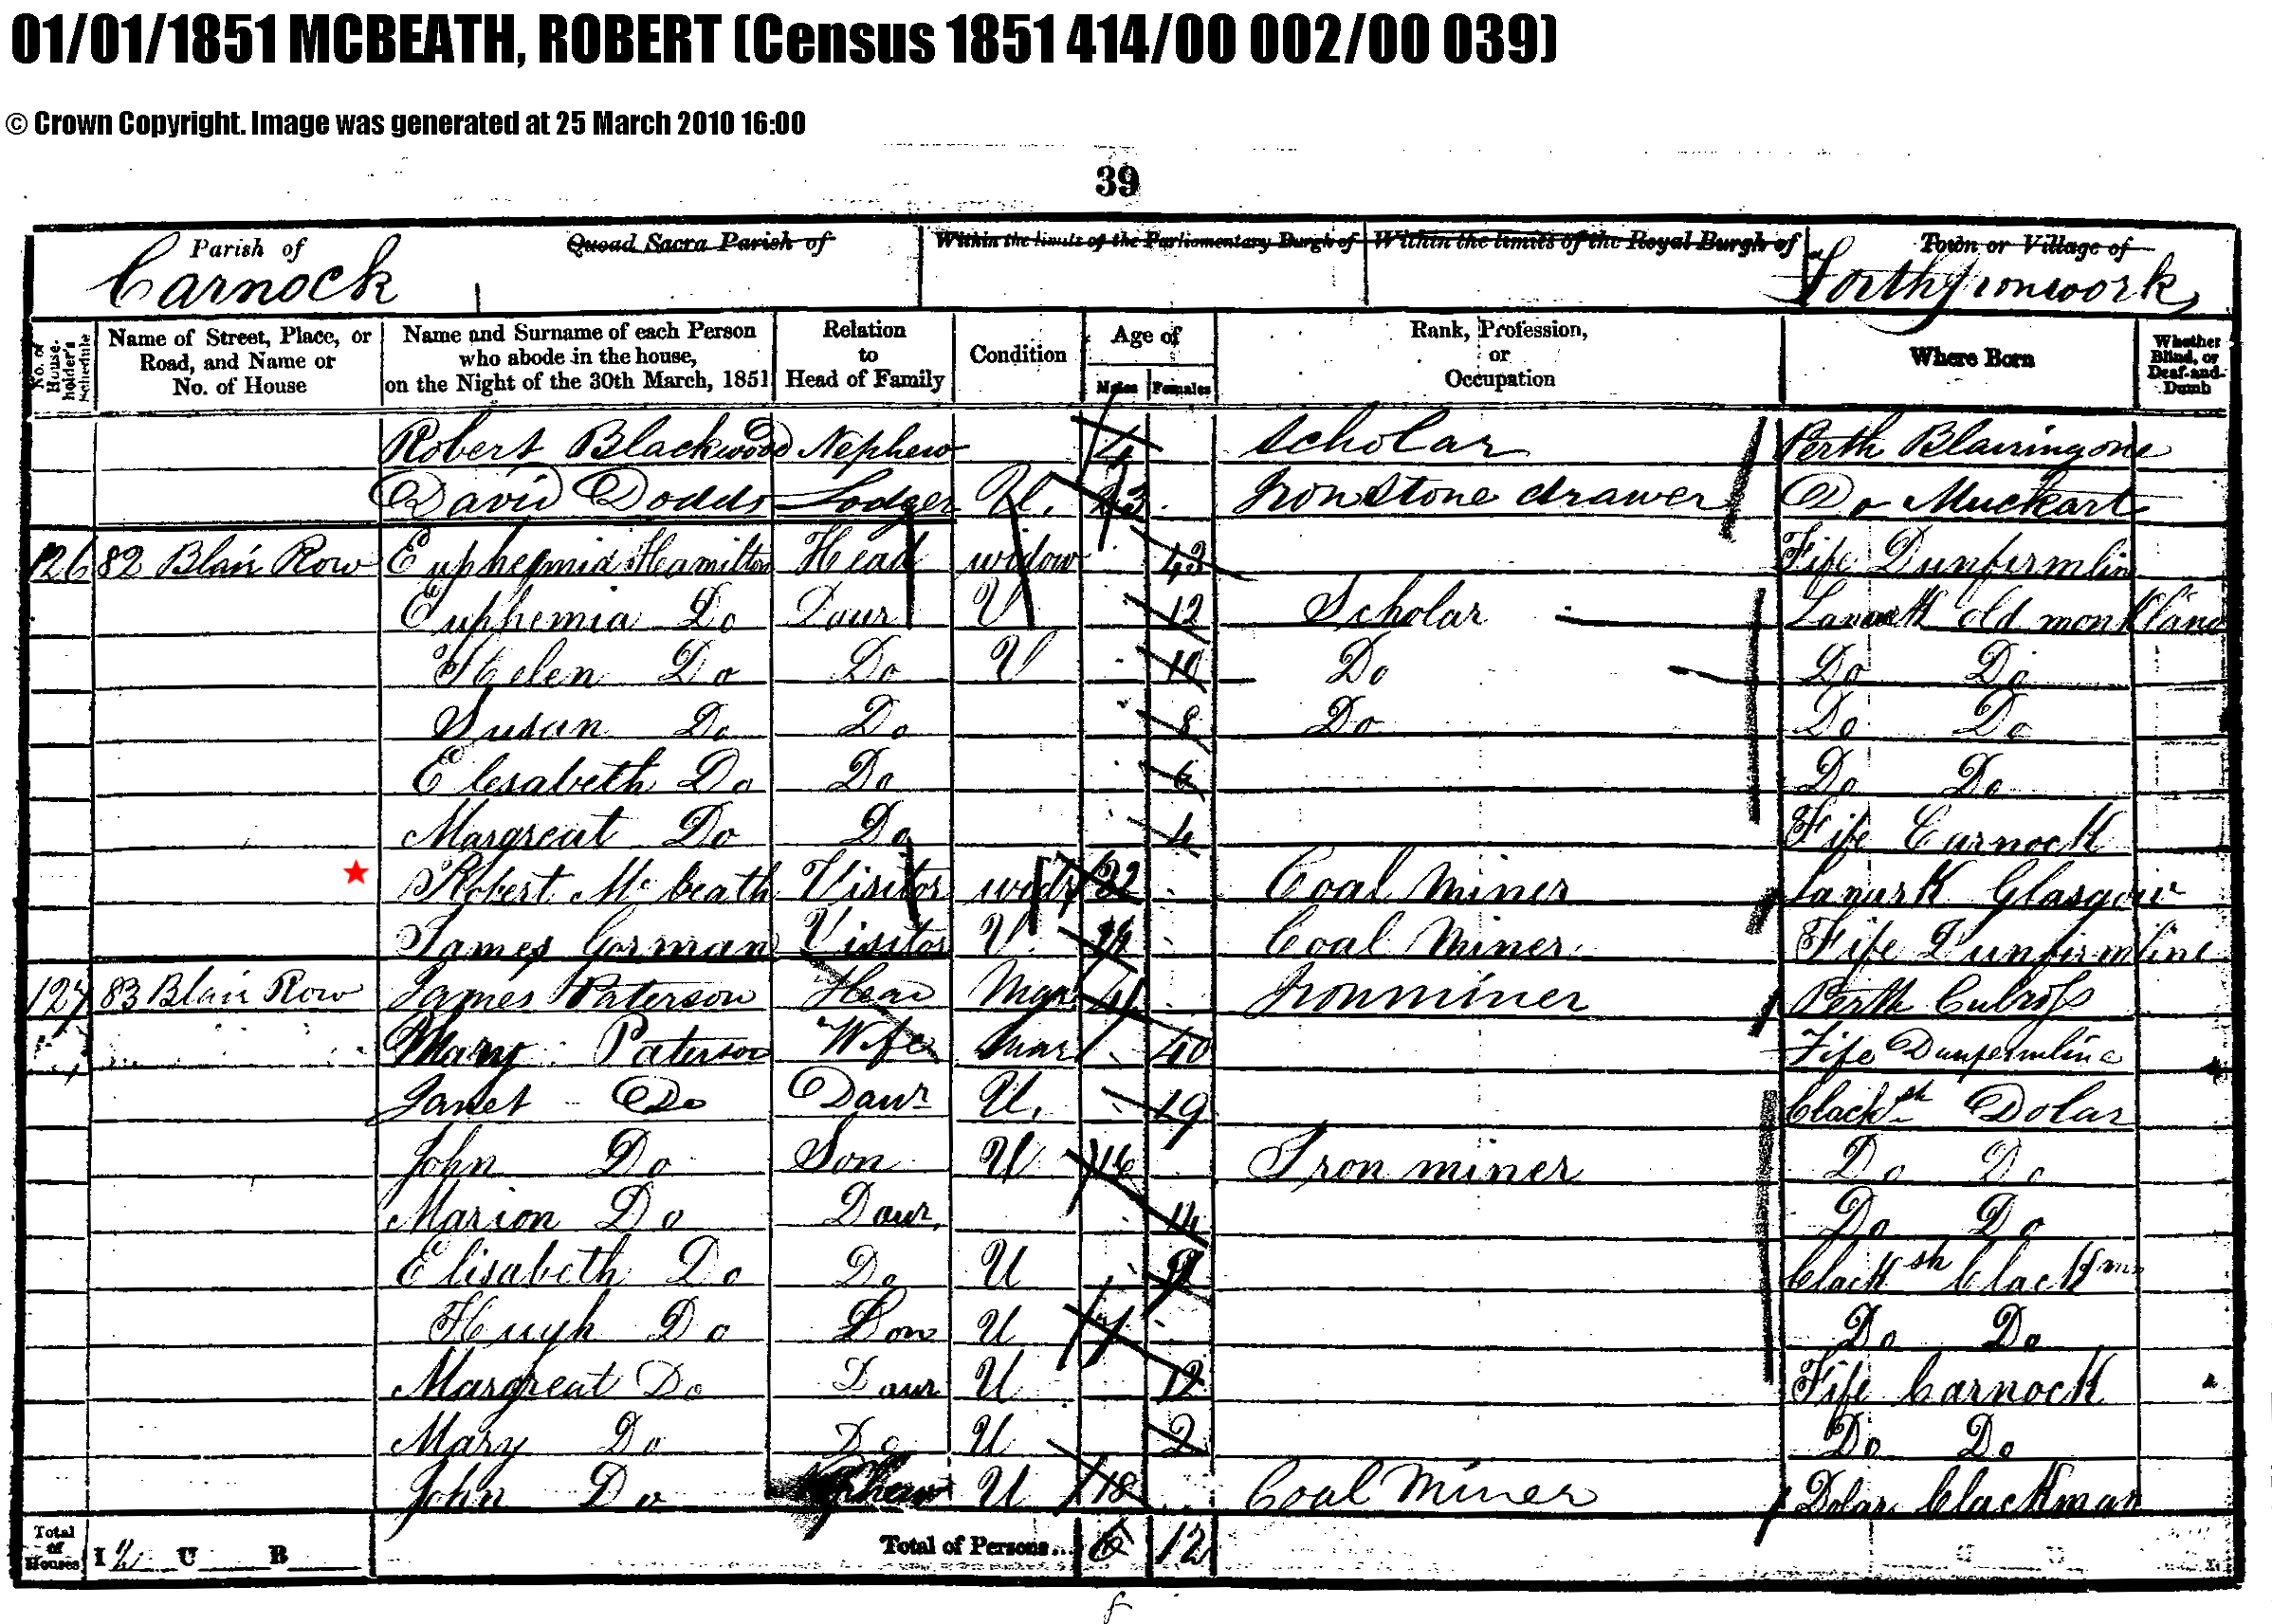 01/01/1851 MCBEATH, ROBERT (Census 1851 414/00 002/00 039)
© Crown Copyright. Image was generated at 25 March 2010 16:00
39
Parish of Quoad Sacra Parish of Within the limits of the Parliamentary Burgh of Within the limits of the Royal Burgh of Town or Village of
Carnock Forth Ironwork
No. of House-holder's Schedule Name of Street, Place, or Road, and Name or No. of House Name and Surname of each Person who abode in the house, on the Night of the 30th March, 1851 Relation to Head of Family Condition Age of Males Females Rank, Profession, or Occupation Where Born Whether Blind, or Deaf-and-Dumb
Robert Blackwood Nephew 4 Scholar Perth Blairingone
David Dodds Lodger U. 23 Ironstone drawer Do Muckart
126 82 Blair Row Euphemia Hamilton Head widow 43 Fife Dunfirmlin
Euphemia Do Daur U 12 Scholar Lanark old monkland
Helen Do Do U 10 Do Do Do
Susan Do Do 8 Do Do Do
Elesabeth Do Do 6 Do Do
Margreat Do Do 4 Fife Carnock
Robert Mc beath Visitor widr Coal Miner Lanark Glasgow
James Gorman Visitor U. Coal Miner Fife Dunfirmline
127 83 Blair Row James Paterson Head Mar 41 Ironminer Perth Culross
Mary Paterson Wife Mar 40 Fife Dunfermline
Janet Do Daur U. 19 Clacksh Dolar
John Do Son U 16 Iron miner Do Do
Marion Do Daur. 14 Do Do
Elisabeth Do Do U 9 Clacksh Clackmn
Hugh Do Son U 7 Do Do
Margreat Do Daur U 12 Fife Carnock
Mary Do Do U 2 Do Do
John Do Nephew U 18 Coal Miner Dolar Clackman
Total of Houses I 2 U B Total of Persons... 12